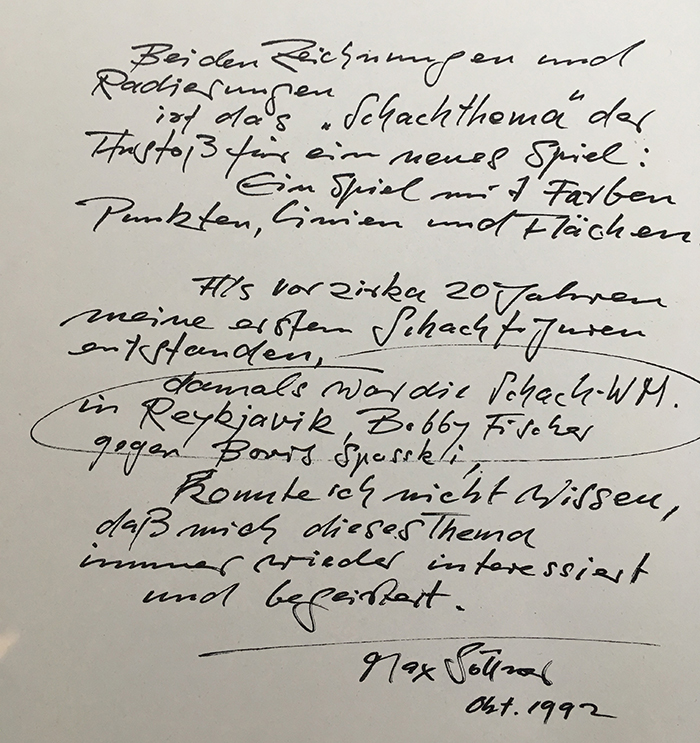 Bei den Zeichnungen und
Radierungen
ist das „Schachthema" der
Anstoß für ein neues Spiel:
Ein Spiel mit Farben
Punkten, Linien und Flächen
Als vor zirka 20 Jahren
meine ersten Schachfiguren
entstanden,
damals war die Schach-WM.
in Reykjavik, Bobby Fischer
gegen Boris Spasski,
konnte ich nicht wissen,
daß mich dieses Thema
immer wieder interessiert
und begeistert.
Max
Okt. 1992